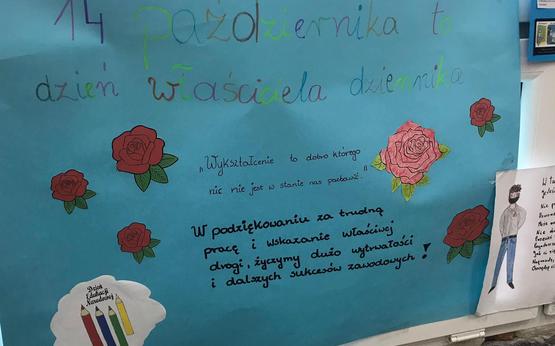 14 października to
dzień właściciela dziennika
„Wykształcenie to dobro którego
nic nie jest w stanie nas pozbawić."
W podziękowaniu za trudną
pracę i wskazanie właściwej
drogi, życzymy dużo wytrwałości
i dalszych sukcesów zawodowych!
Dzień
Edukacji
Narodowej